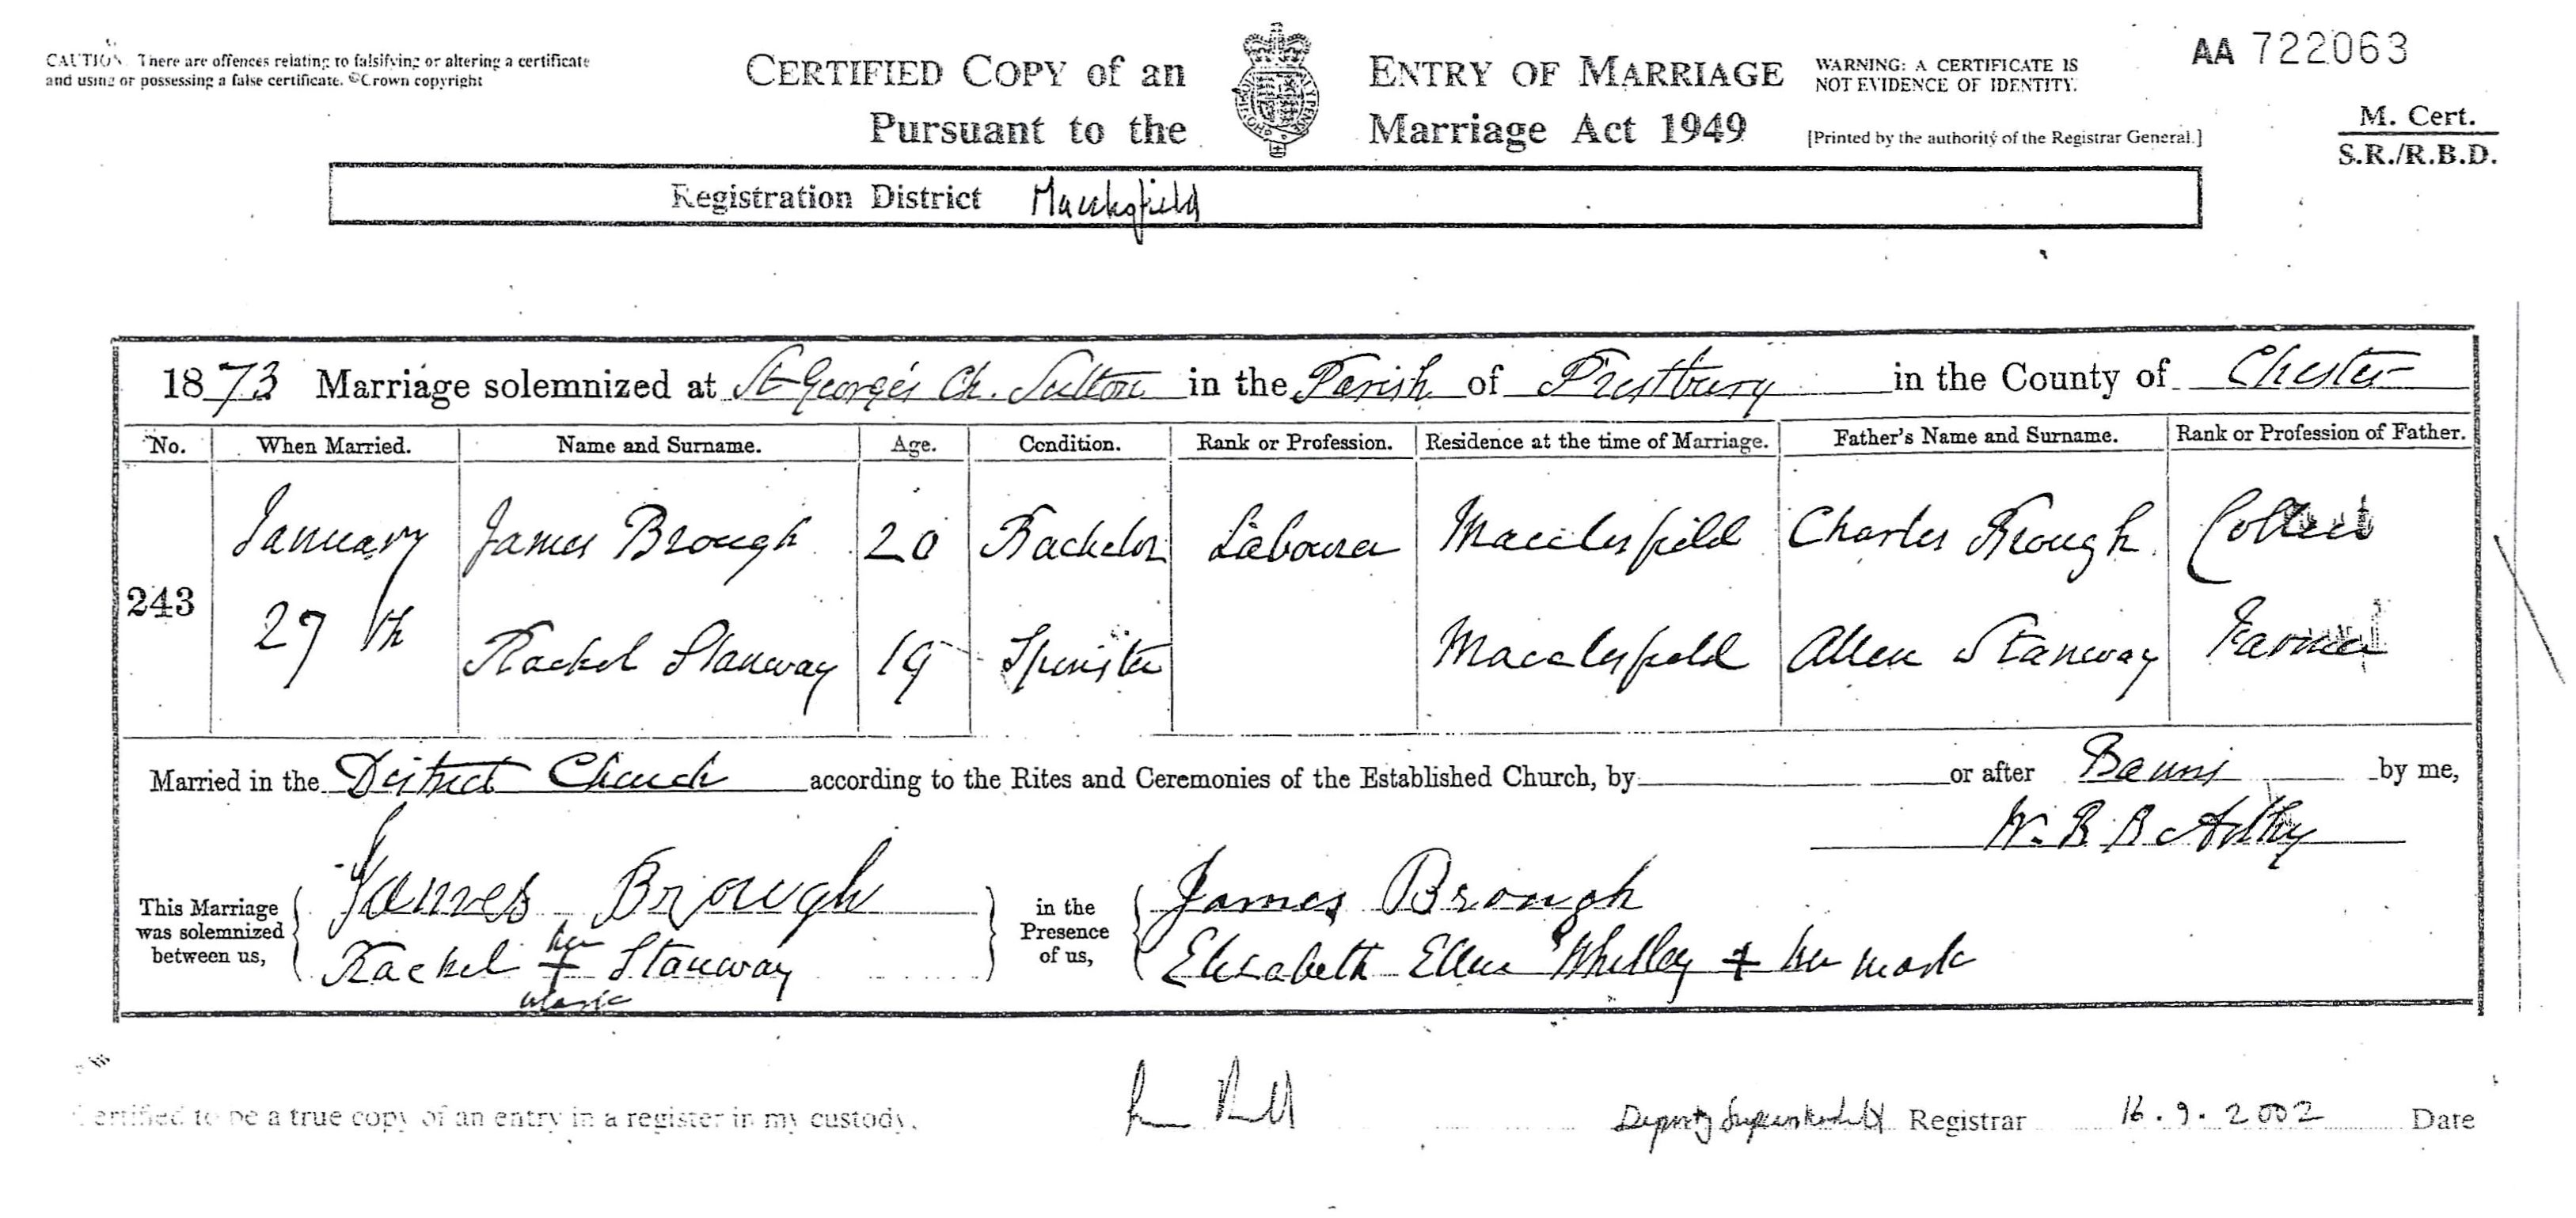 CAUTION: There are offences relating to falsifying or altering a certificate
and using or possessing a false certificate. ©Crown copyright
CERTIFIED COPY of an ENTRY OF MARRIAGE
Pursuant to the Marriage Act 1949
WARNING: A CERTIFICATE IS
NOT EVIDENCE OF IDENTITY.
[Printed by the authority of the Registrar General.]
AA 722063
M. Cert.
S.R./R.B.D.
Registration District Macclesfield
1873 Marriage solemnized at St George's Ch. Sutton in the Parish of Prestbury in the County of Chester
No. When Married. Name and Surname. Age. Condition. Rank or Profession. Residence at the time of Marriage. Father's Name and Surname. Rank or Profession of Father.
January James Brough 20 Bachelor Labourer Macclesfield Charles Brough
243
27th Rachel Stanway 19 Spinster Macclesfield Allen Stanway Farmer
Married in the District Church according to the Rites and Ceremonies of the Established Church, by or after Banns by me,
W. B. B.
This Marriage was solemnized between us, James Brough in the Presence of us, James Brough
Rachel her + mark Stanway Elizabeth Ellen + her mark
Certified to be a true copy of an entry in a register in my custody.
Deputy Superintendent Registrar 16.9.2002 Date